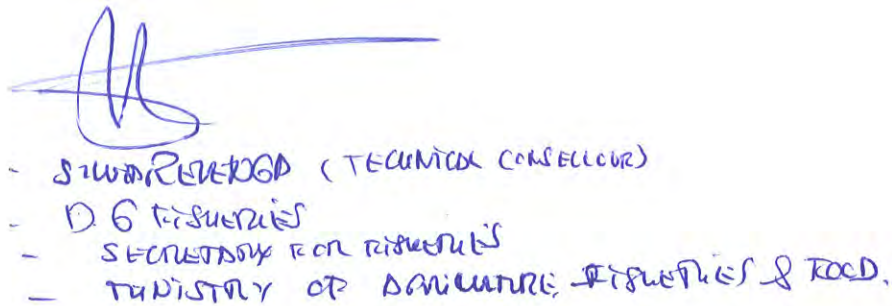 - (TECHNICAL CONSELLOUR)
- D.G FISHERIES
- SECRETARY FOR FISHERIES
- MINISTRY OF AGRICULTURE, FISHERIES & FOOD.